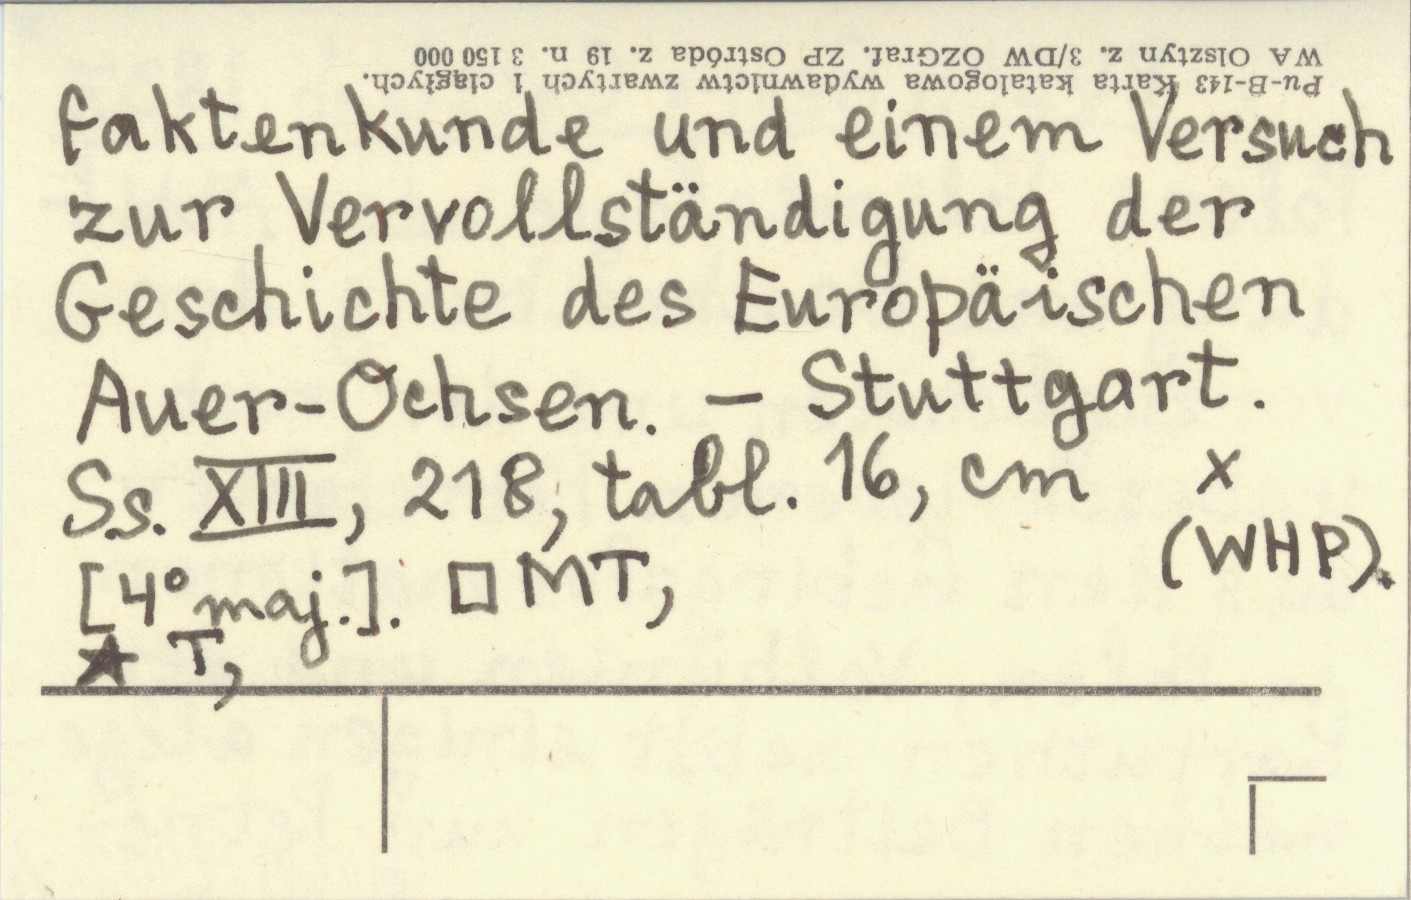 WA Olsztyn z. 3/DW OZGraf. ZP Ostróda z. 19 n. 3 150 000
Pu-B-143 Karta katalogowa wydawnictw zwartych i ciągłych.
faktenkunde und einem Versuch
zur Vervollständigung der
Geschichte des Europäischen
Auer-Ochsen. — Stuttgart.
Ss. XIII, 218, tabl. 16, cm x
[4° maj.]. □ MT, (WHP).
★ T,